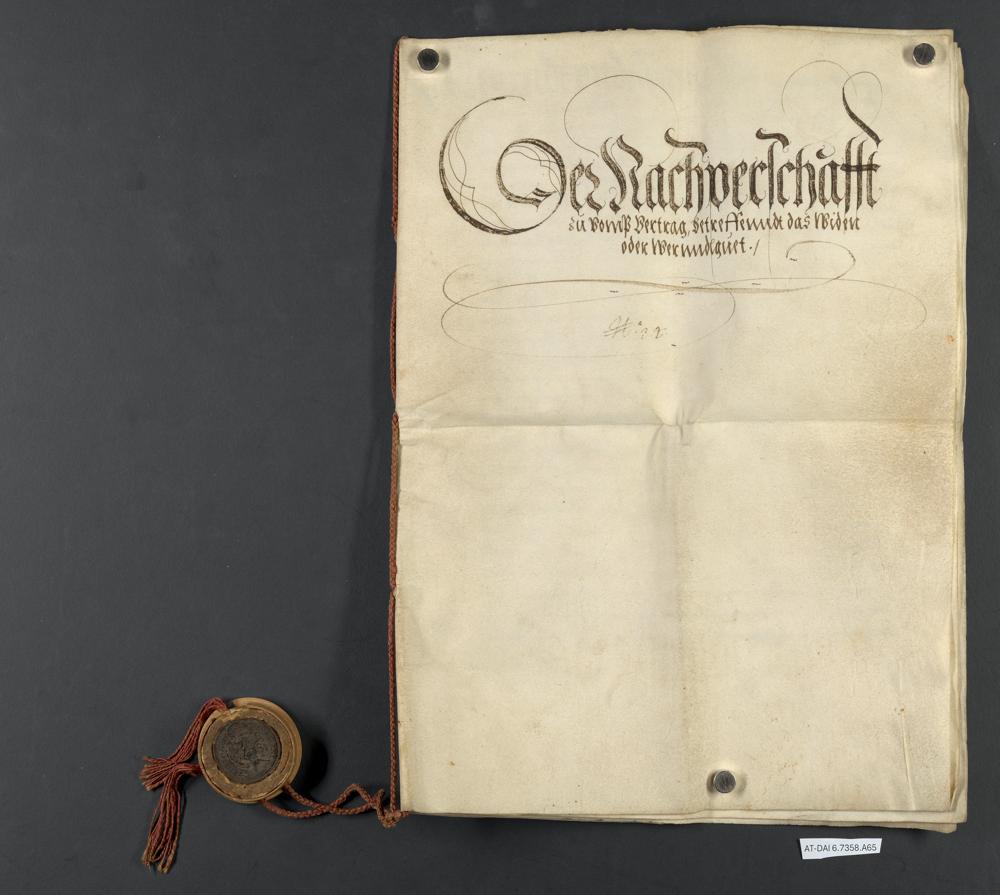 Der Nachperschafft
zu Vomp Vertrag, betreffenndt das Widen
oder Wer unndt guet ./
AT-DAI 6.7358.A65